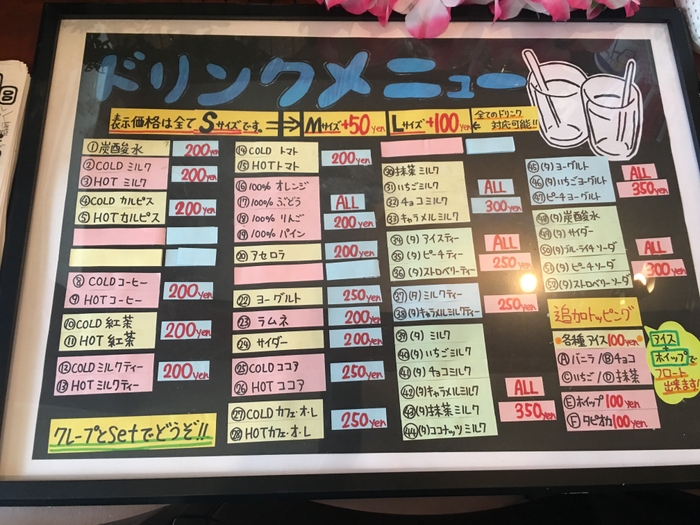 ドリンクメニュー
表示価格は全てSサイズです。⇒ Mサイズ+50yen Lサイズ+100yen ←全てのドリンク対応可能!!
①炭酸水 200yen
②COLD ミルク
③HOT ミルク
200yen
④COLD カルピス
⑤HOTカルピス
200yen
⑧COLDコーヒー
⑨HOTコーヒー
200yen
⑩COLD 紅茶
⑪HOT 紅茶
200yen
⑫COLDミルクティー
⑬HOTミルクティー
200yen
クレープとSetでどうぞ!!
⑭COLD トマト
⑮HOTトマト
200yen
⑯100% オレンジ
⑰100% ぶどう
⑱100% りんご
⑲100% パイン
ALL
200yen
⑳アセロラ 200yen
㉒ヨーグルト 250yen
㉓ラムネ 200yen
㉔サイダー 200yen
㉕COLDココア
㉖HOT ココア
250yen
㉗COLDカフェ・オ・レ
㉘HOTカフェ・オ・レ
250yen
㉚抹茶ミルク
㉛いちごミルク
㉜チョコミルク
㉝キャラメルミルク
ALL
300yen
㉞(タ)アイスティー
㉟(タ)ピーチティー
㊱(タ)ストロベリーティー
ALL
250yen
㊲(タ)ミルクティー
㊳(タ)キャラメルミルクティー
250yen
㊴(タ)ミルク
㊵(タ)いちごミルク
㊶(タ)チョコミルク
㊷(タ)キャラメルミルク
㊸(タ)抹茶ミルク
㊹(タ)ココナッツミルク
ALL
350yen
㊺(タ)ヨーグルト
㊻(タ)いちごヨーグルト
㊼(タ)ピーチヨーグルト
ALL
350yen
㊽(タ)炭酸水
㊾(タ)サイダー
㊿(タ)ブルーライチソーダ
51(タ)ピーチソーダ
52(タ)ストロベリーソーダ
ALL
300yen
追加トッピング
各種アイス100yen
Ⓐバニラ/Ⓑチョコ
Ⓒいちご/Ⓓ抹茶
Ⓔホイップ100yen
Ⓕタピオカ100yen
アイス
+
ホイップで
フロート
出来ます!